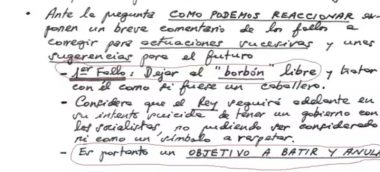 • Ante la pregunta COMO PODEMOS REACCIONAR se
ponen un breve comentario de los fallos a
corregir para actuaciones sucesivas y unas
sugerencias para el futuro
- 1er Fallo: Dejar al "borbón" libre y tratar
con él como si fuese un caballero.
- Considera que el Rey seguirá adelante en
su intento suicida de tener un gobierno con
los socialistas, no pudiendo ser considerado
ni como un símbolo a respetar.
- Es portanto un OBJETIVO A BATIR Y ANULA